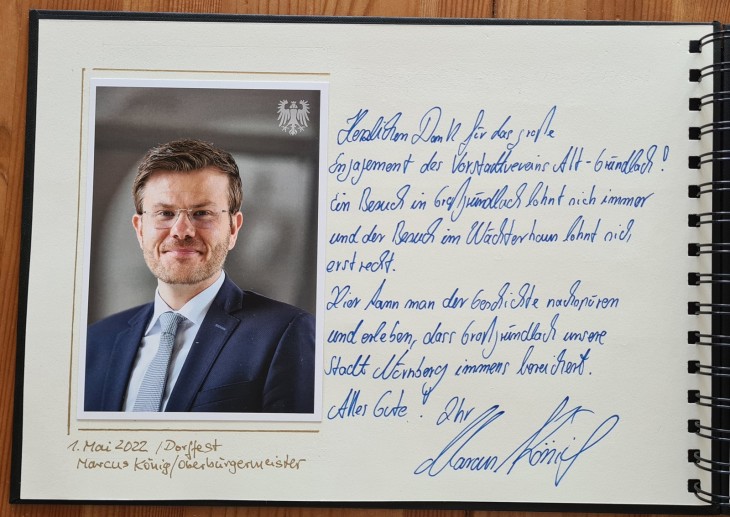 Herzlichen Dank für das große
Engagement des Vorstadtvereins Alt-Gründlach!
Ein Besuch in Großgründlach lohnt sich immer
und der Besuch im Wächterhaus lohnt sich
erst recht.
Hier kann man der Geschichte nachspüren
und erleben, dass Großgründlach unsere
Stadt Nürnberg immens bereichert.
Alles Gute! Ihr
Marcus König
1. Mai 2022 / Dorffest
Marcus König/Oberbürgermeister